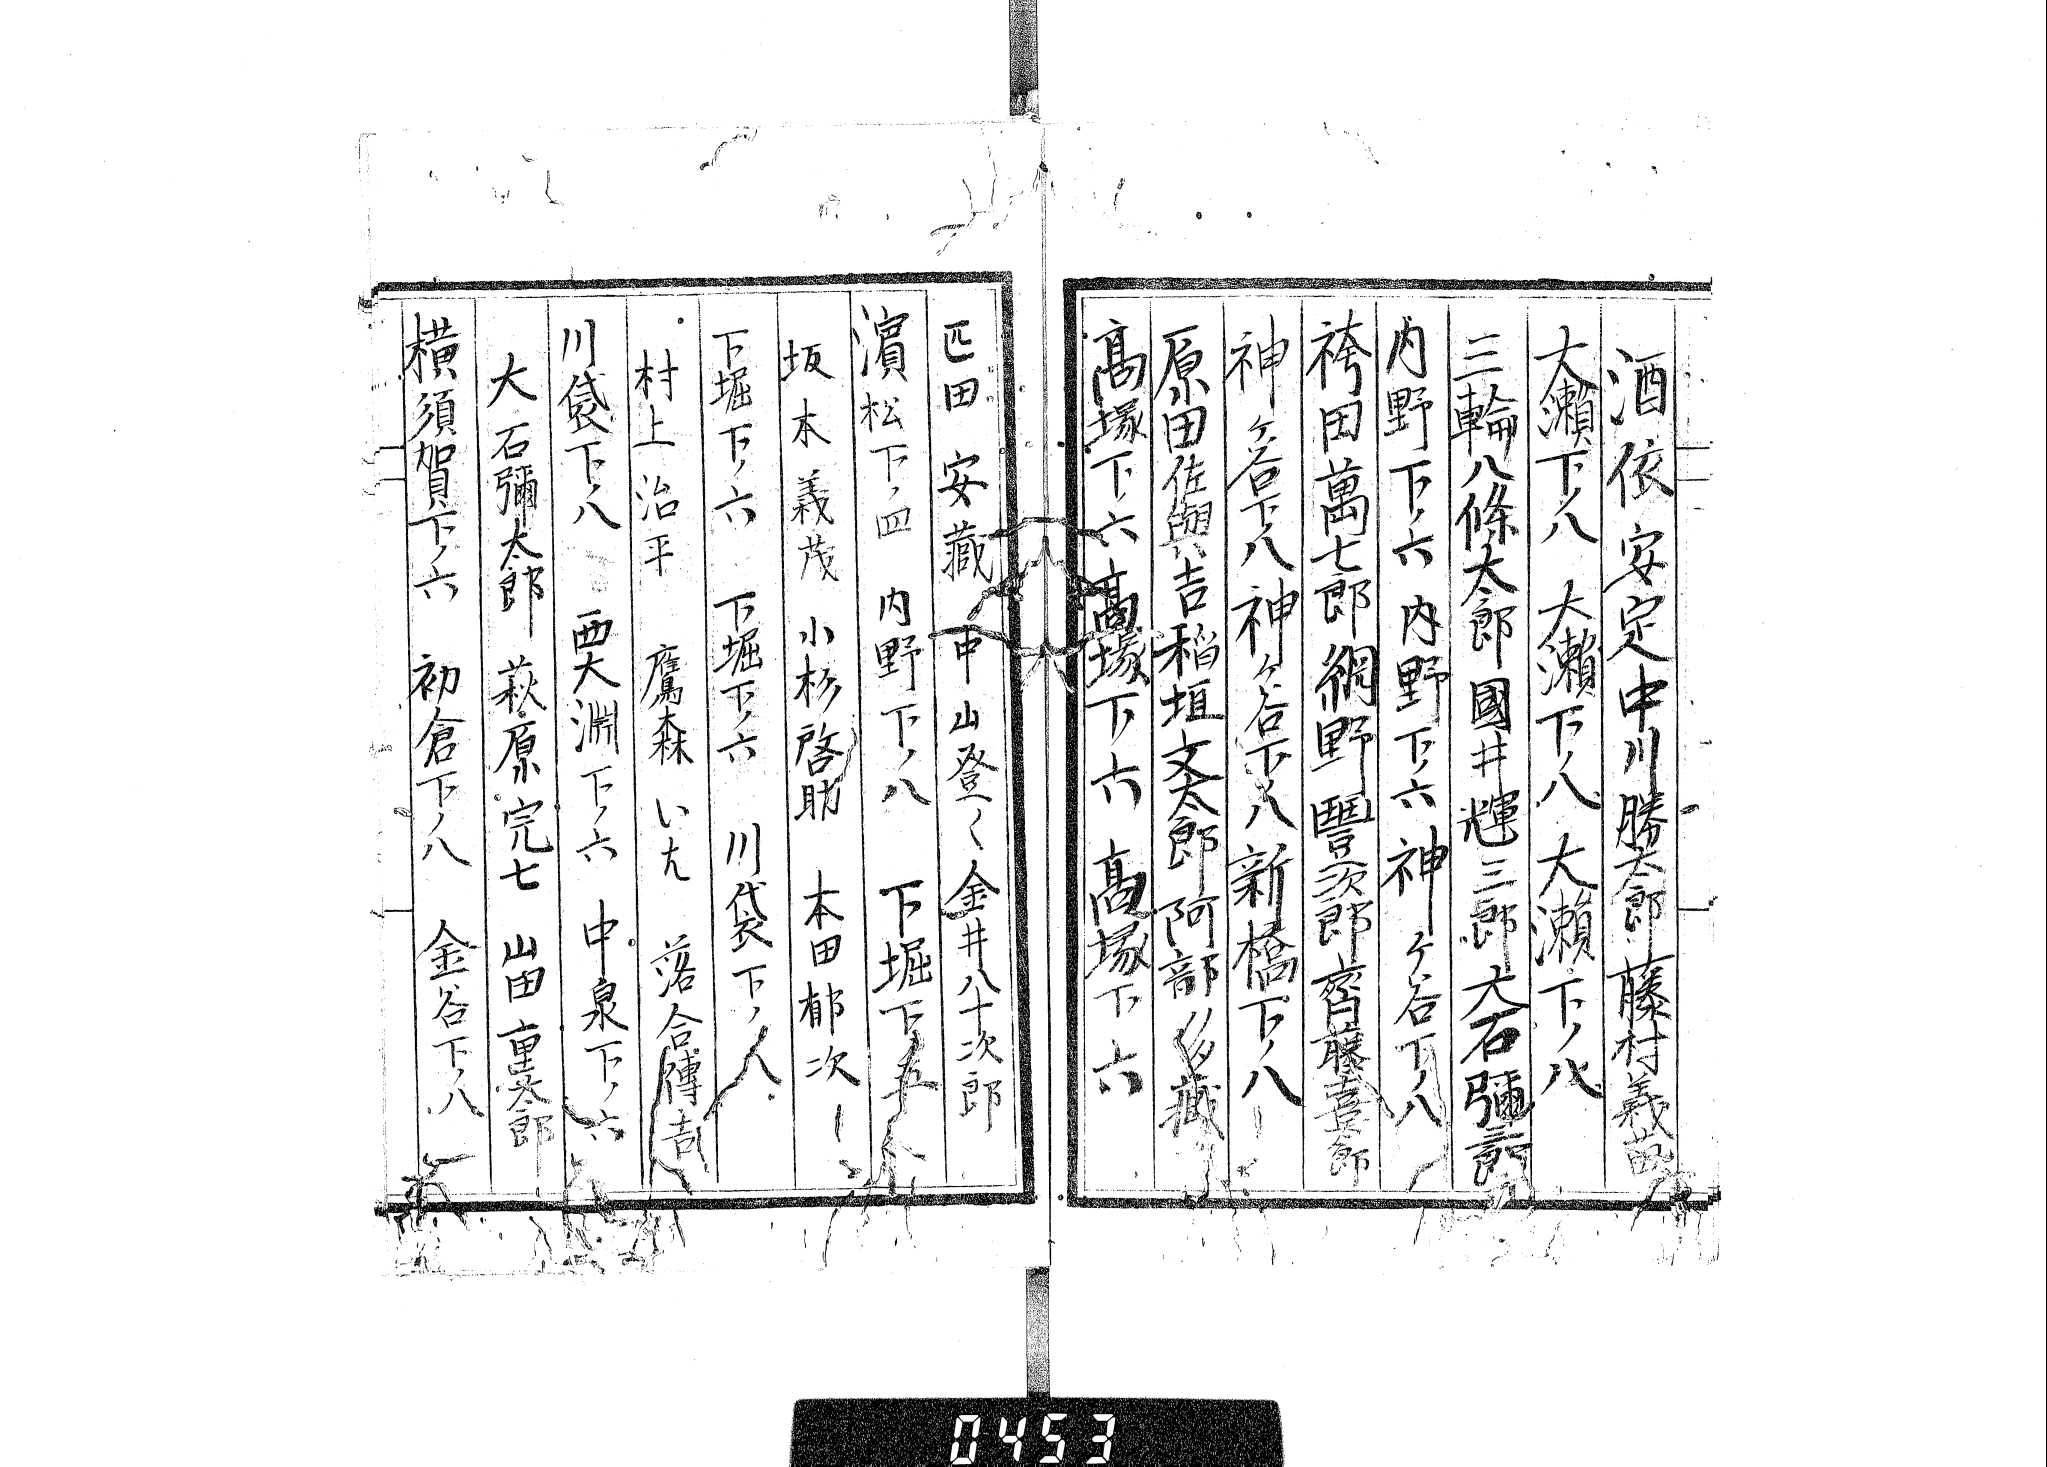 酒依安定 中川勝太郎 藤村義苗
大瀬下ノ八 大瀬下ノ八 大瀬下ノ八
三輪八條太郎 國井輝三郎 大石彌一郎
内野下ノ六 内野下ノ六 神ヶ谷下ノ八
袴田萬七郎 網野豐次郎 齊藤喜一郎
神ヶ谷下ノ八 神ヶ谷下ノ八 新橋下ノ八
原田佐與吉 稲垣文太郎 阿部 藏
髙塚下ノ六 髙塚下ノ六 髙塚下ノ六
匹田安藏 中山登〱 金井八十次郎
濱松下ノ四 内野下ノ八 下堀下ノ五
坂本義茂 小杉啓助 本田郁次
下堀下ノ六 下堀下ノ六 川袋下ノ八
村上治平 鷹森いち 落合傳吉
川袋下ノ八 西大淵下ノ六 中泉下ノ六
大石彌太郎 萩原完七 山田重太郎
横須賀下ノ六 初倉下ノ八 金谷下ノ八
0453